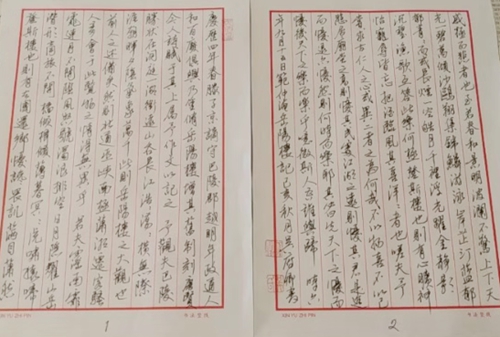 慶曆四年春滕子京謫守巴陵郡越明年政通人
和百廢俱興乃重修岳陽樓增其舊制刻唐賢
今人詩賦于其上屬予作文以記之 予觀夫巴陵
勝狀在洞庭一湖銜遠山吞長江浩浩湯湯橫無際
涯朝暉夕陰氣象萬千此則岳陽樓之大觀也
前人之述備矣然則北通巫峽南極瀟湘遷客騷
人多會于此覽物之情得無異乎 若夫霪雨霏
霏連月不開陰風怒號濁浪排空日星隱耀山岳
潛形商旅不行檣傾楫摧薄暮冥冥虎嘯猿啼
登斯樓也則有去國懷鄉憂讒畏譏滿目蕭然
1
感極而悲者也 至若春和景明波瀾不驚上下天
光一碧萬頃沙鷗翔集錦鱗游泳岸芷汀蘭郁
郁青青而或長煙一空皓月千里浮光耀金靜影
沉璧漁歌互答此樂何極登斯樓也則有心曠神
怡寵辱皆忘把酒臨風其喜洋洋者也嗟夫予
嘗求古仁人之心或異二者之為何哉不以物喜不以己
悲居廟堂之高則憂其民處江湖之遠則憂其君是進
亦憂退亦憂然則何時而樂耶其必曰先天下之憂而
憂後天下之樂而樂乎噫微斯人吾誰與歸 時六
年九月十五日 范仲淹岳陽樓記 己亥秋月
2